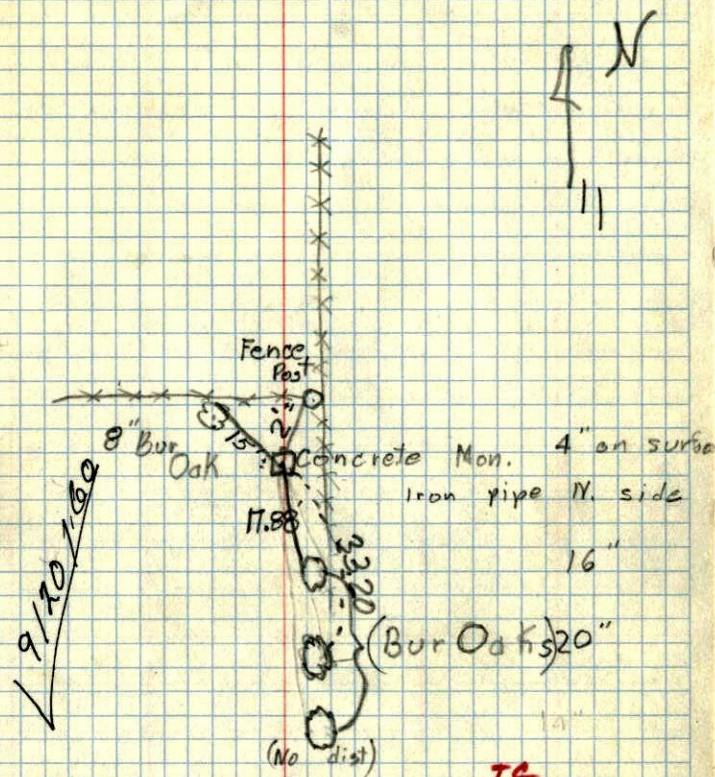 N
Fence
Post
2'
8" Bur
Oak
15'
Concrete Mon. 4" on surfac
Iron pipe N. side
17.88
33.20
16"
(Bur Oaks) 20"
14"
(No dist)
✓ 9/20/60